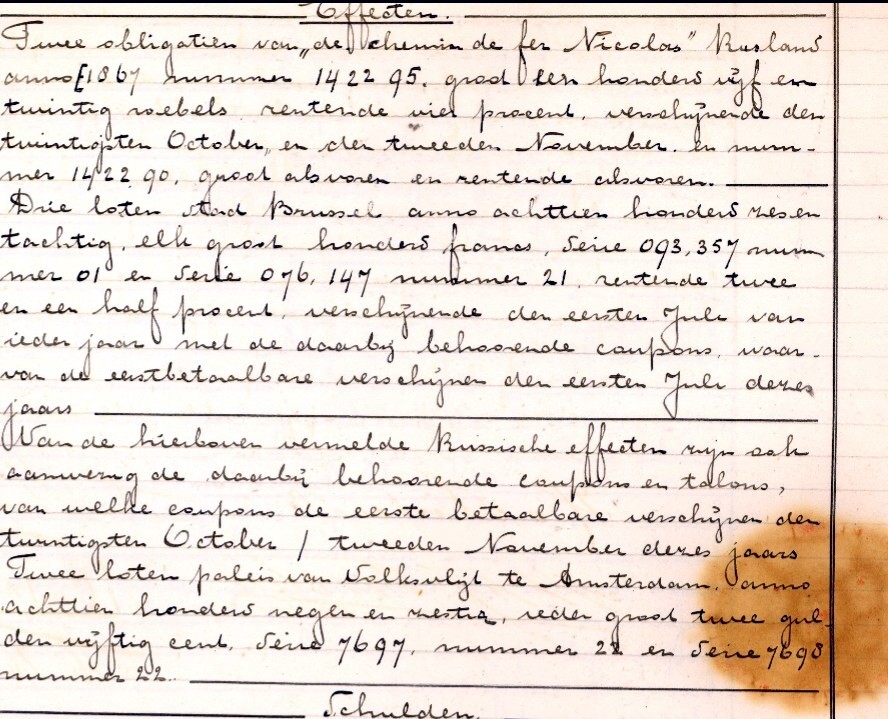 Effecten.
Twee obligatiën van „de chemin de fer Nicolas" Rusland
anno 1867 nummer 142295, groot een honderd vijf en
twintig roebels, rentende vier procent, verschijnende den
twintigsten October, en den tweeden November, en num-
mer 142290, groot alsvoren en rentende alsvoren.
Drie loten stad Brussel anno achttien honderd zes en
tachtig, elk groot honderd francs, Serie 093,357 num
mer 01 en Serie 076,147 nummer 21, rentende twee
en een half procent, verschijnende den eersten Juli van
ieder jaar met de daarbij behoorende coupons, waar-
van de eerstbetaalbare verschijnen den eersten Juli dezes
jaars
Van de hierboven vermelde Russische effecten zijn ook
aanwezig de daarbij behoorende coupons en talons,
van welke coupons de eerste betaalbare verschijnen den
twintigsten October / tweeden November dezes jaars
Twee loten paleis van Volksvlijt te Amsterdam, anno
achttien honderd negen en zestig, ieder groot twee gul-
den vijftig cent, Serie 7697, nummer 22 en Serie 7698
nummer 22.
Schulden.